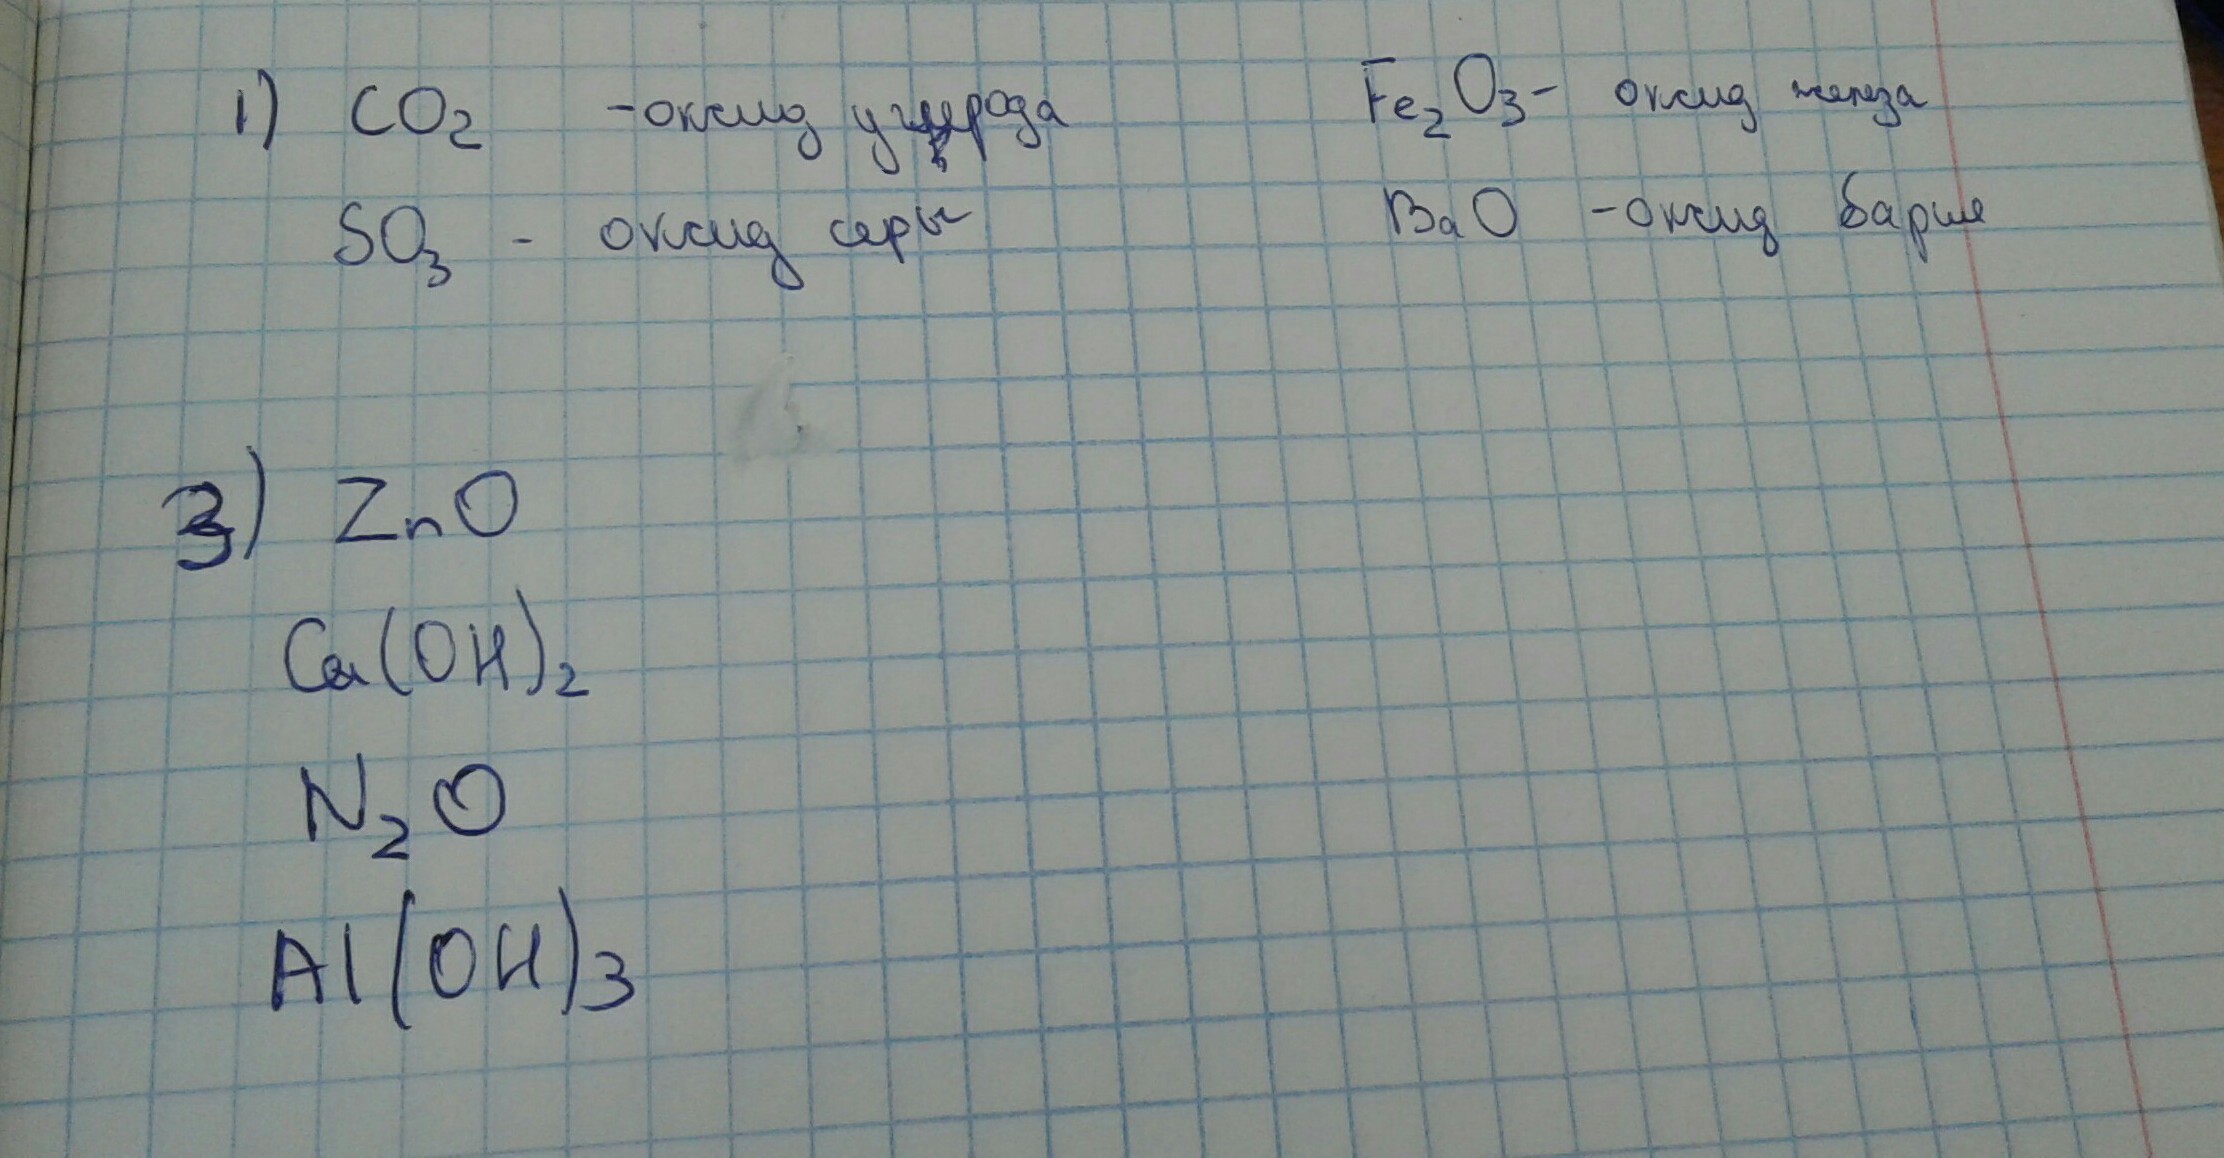 1) CO₂ - оксид углерода Fe₂O₃ - оксид железа
SO₃ - оксид серы BaO - оксид бария
3) ZnO
Ca(OH)₂
N₂O
Al(OH)₃